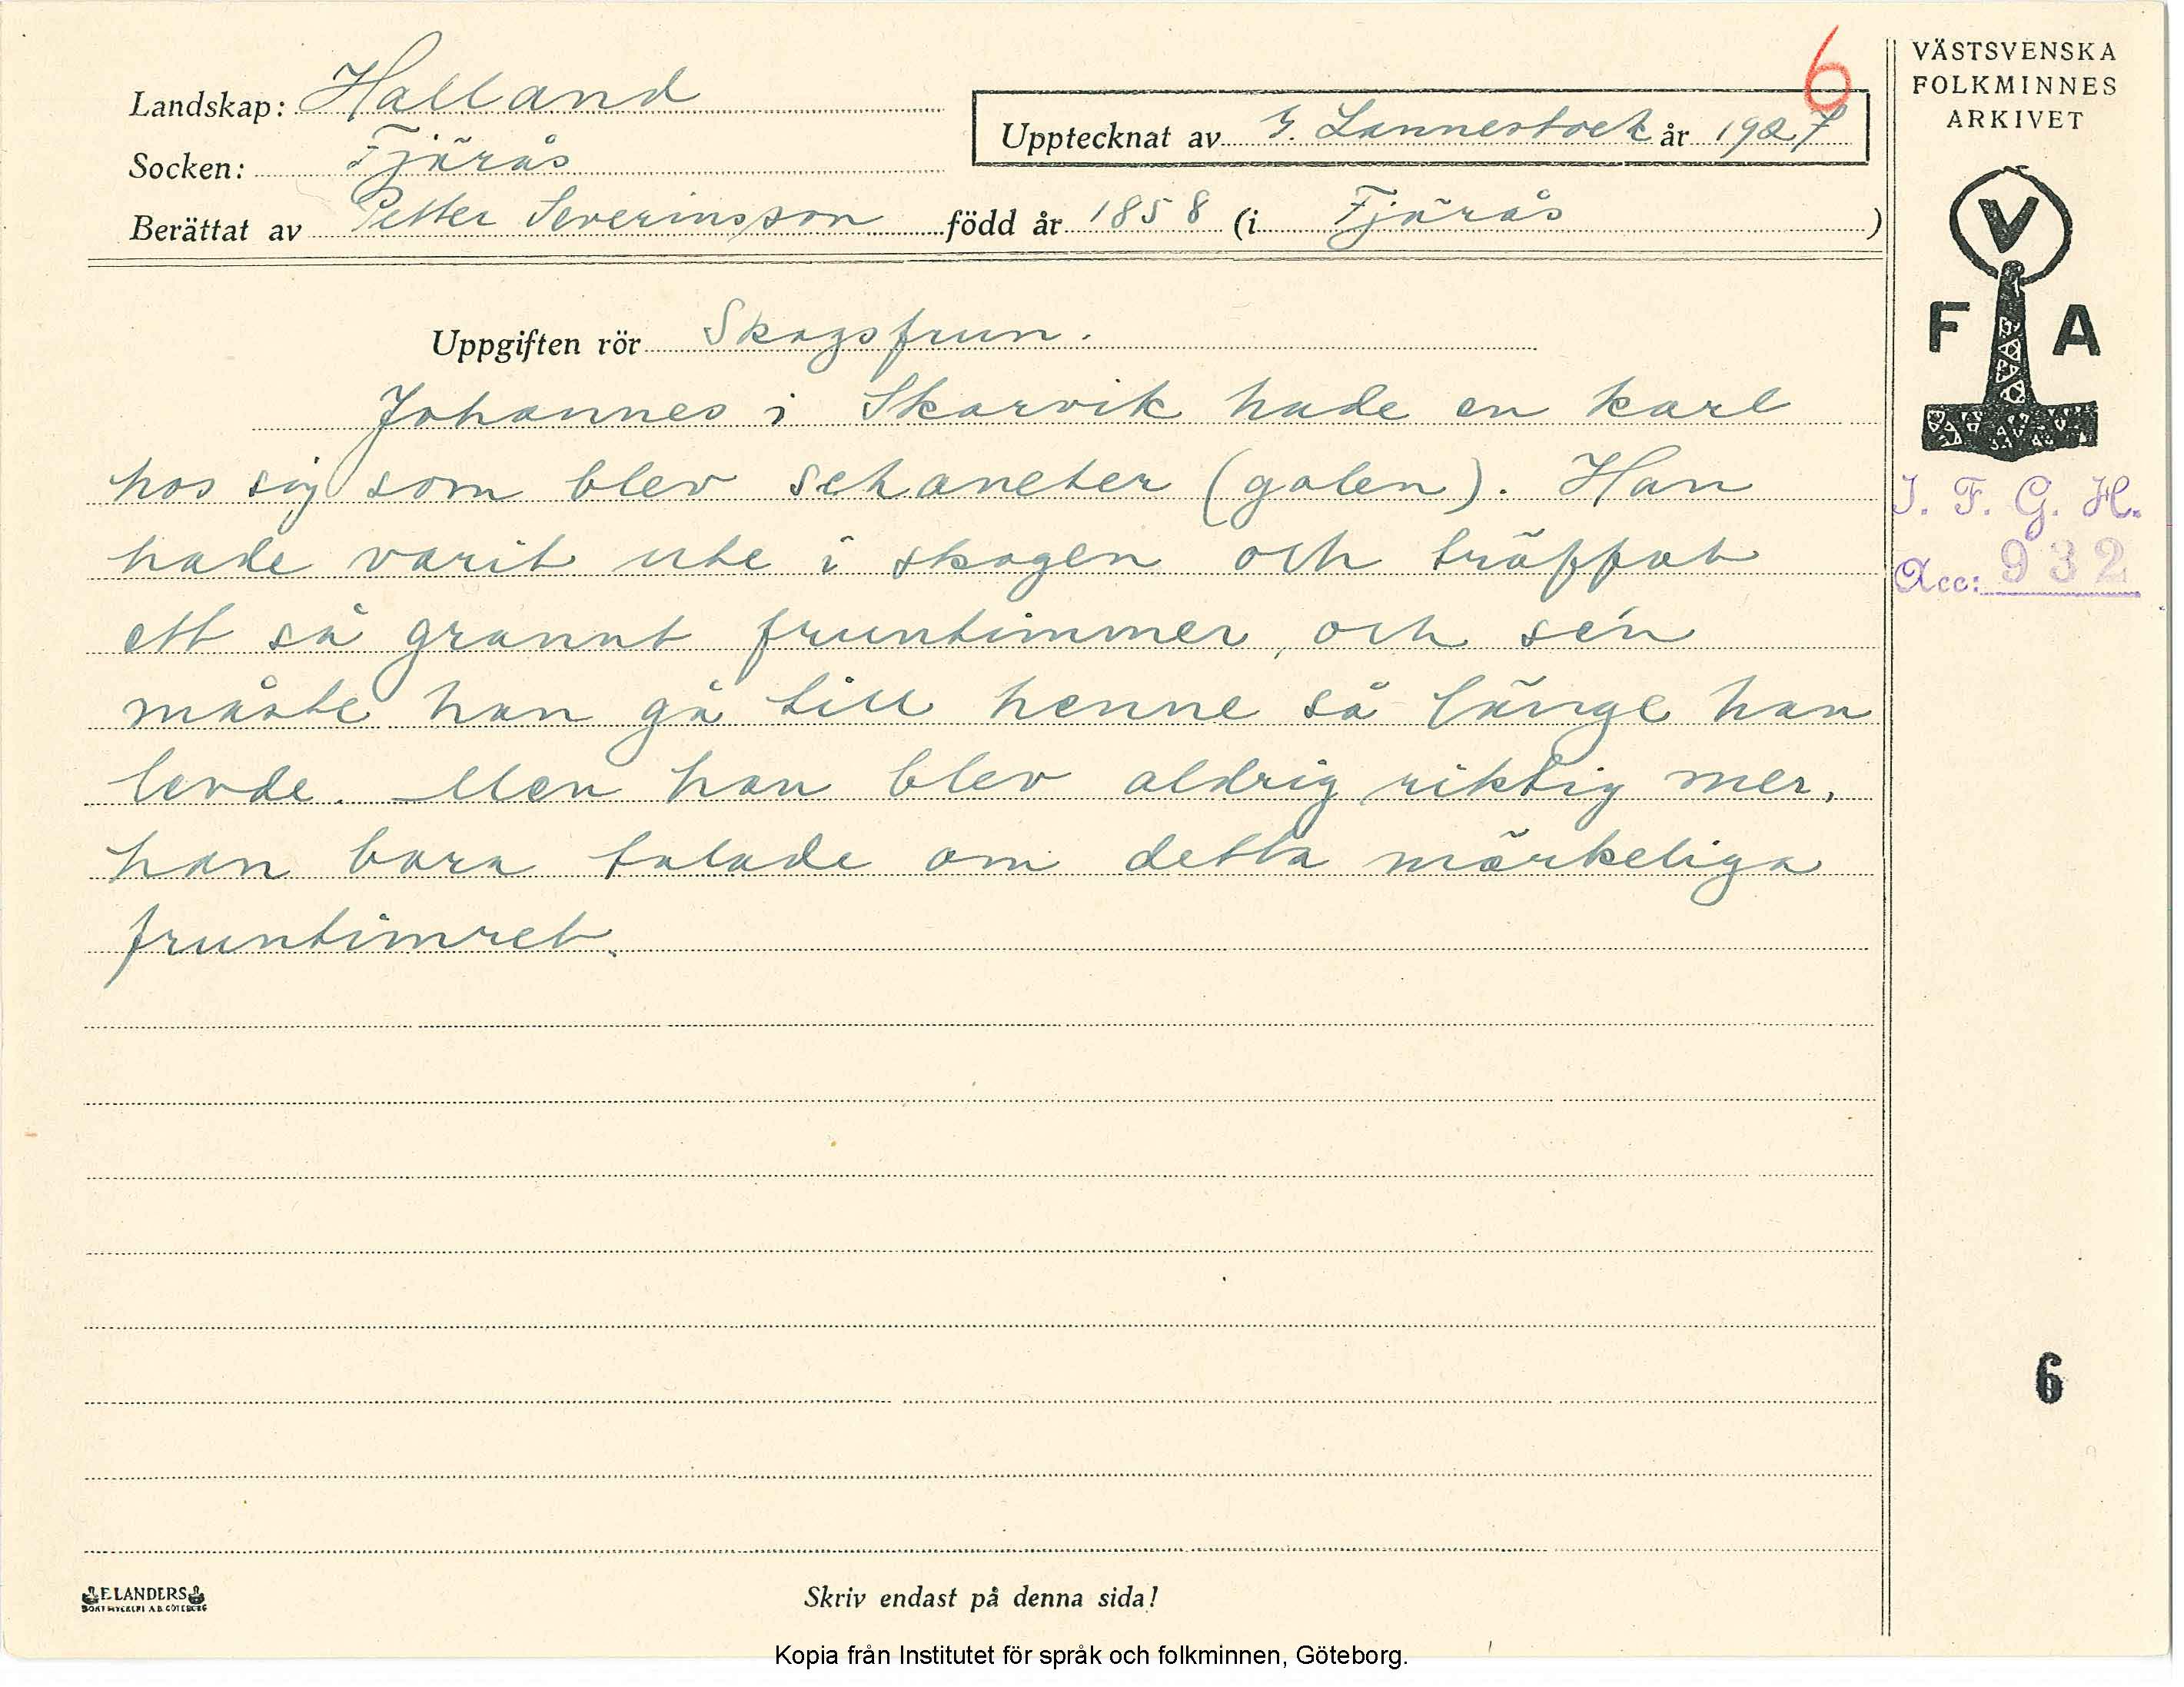 6
VÄSTSVENSKA
FOLKMINNES
ARKIVET
Landskap: Halland
Upptecknat av G. Lannestock år 1927
Socken: Fjärås
Berättat av Petter Severinsson född år 1858 (i Fjärås )
V
F A
Uppgiften rör Skogsfrun.
Johannes i Skarvik hade en karl
hos sig som blev schaneter (galen). Han
hade varit ute i skogen och träffat
ett så grannt fruntimmer, och sén
måste han gå till henne så länge han
levde. Men han blev aldrig riktig mer,
han bara talade om detta märkeliga
fruntimret.
I. F. G. H.
Acc: 932
6
ELANDERS
BOKTRYCKERI A.B. GÖTEBORG
Skriv endast på denna sida!
Kopia från Institutet för språk och folkminnen, Göteborg.